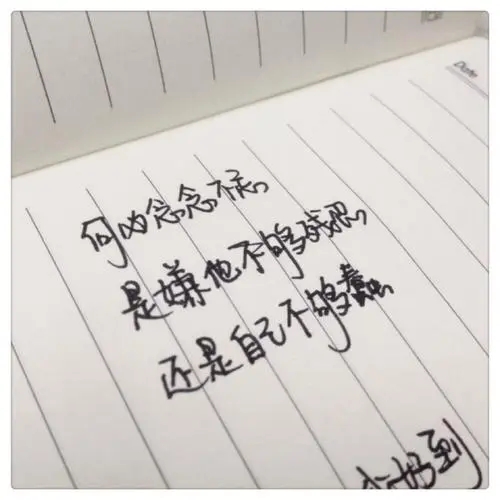 Date
何必念念不忘
是嫌他不够残忍
还是自己不够蠢
好到